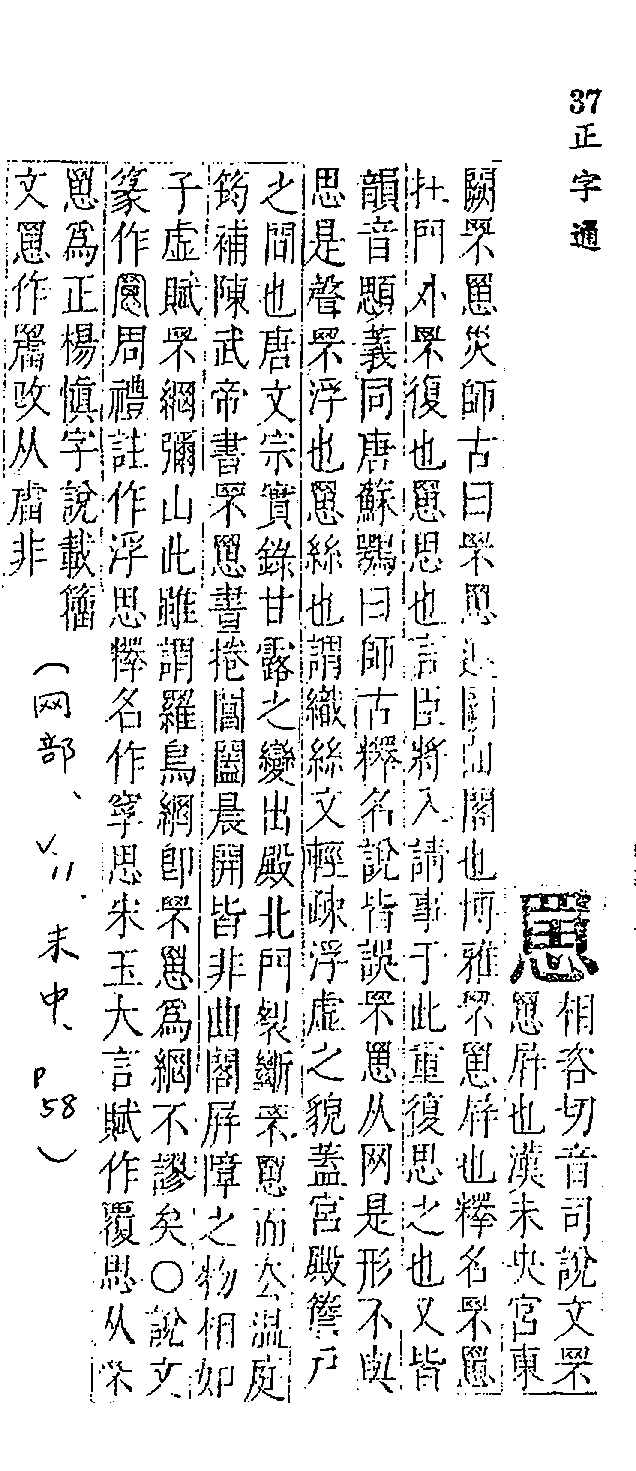 37 正字通
罳
相咨切音司說文罘
罳屏也漢未央宮東
闕罘罳災師古曰罘罳連闕曲閣也博雅罘罳屏也釋名罘罳
在門外罘復也罳思也言臣將入請事于此重復思之也又皆
韻音顋義同唐蘇鶚曰師古釋名說皆誤罘罳从网是形不與
思是聲罘浮也罳絲也謂織絲文輕疎浮虛之貌蓋宮殿簷戶
之間也唐文宗實錄甘露之變出殿北門裂斷罘罳而去溫庭
筠補陳武帝書罘罳晝捲閶闔晨開皆非曲閣屏障之物相如
子虛賦罘網彌山此雖謂羅鳥網卽罘罳爲網不謬矣○說文
篆作罳周禮註作浮思釋名作罦思宋玉大言賦作覆思从罘
罳爲正楊愼字說載籒
文罳作改从非
(网部、V11.未中、P58)